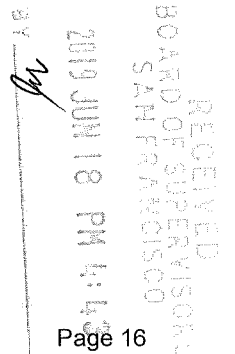 RECEIVED
BOARD OF SUPERVISORS
SAN FRANCISCO
2019 JUN 18 PM 4:43
BY
Page 16